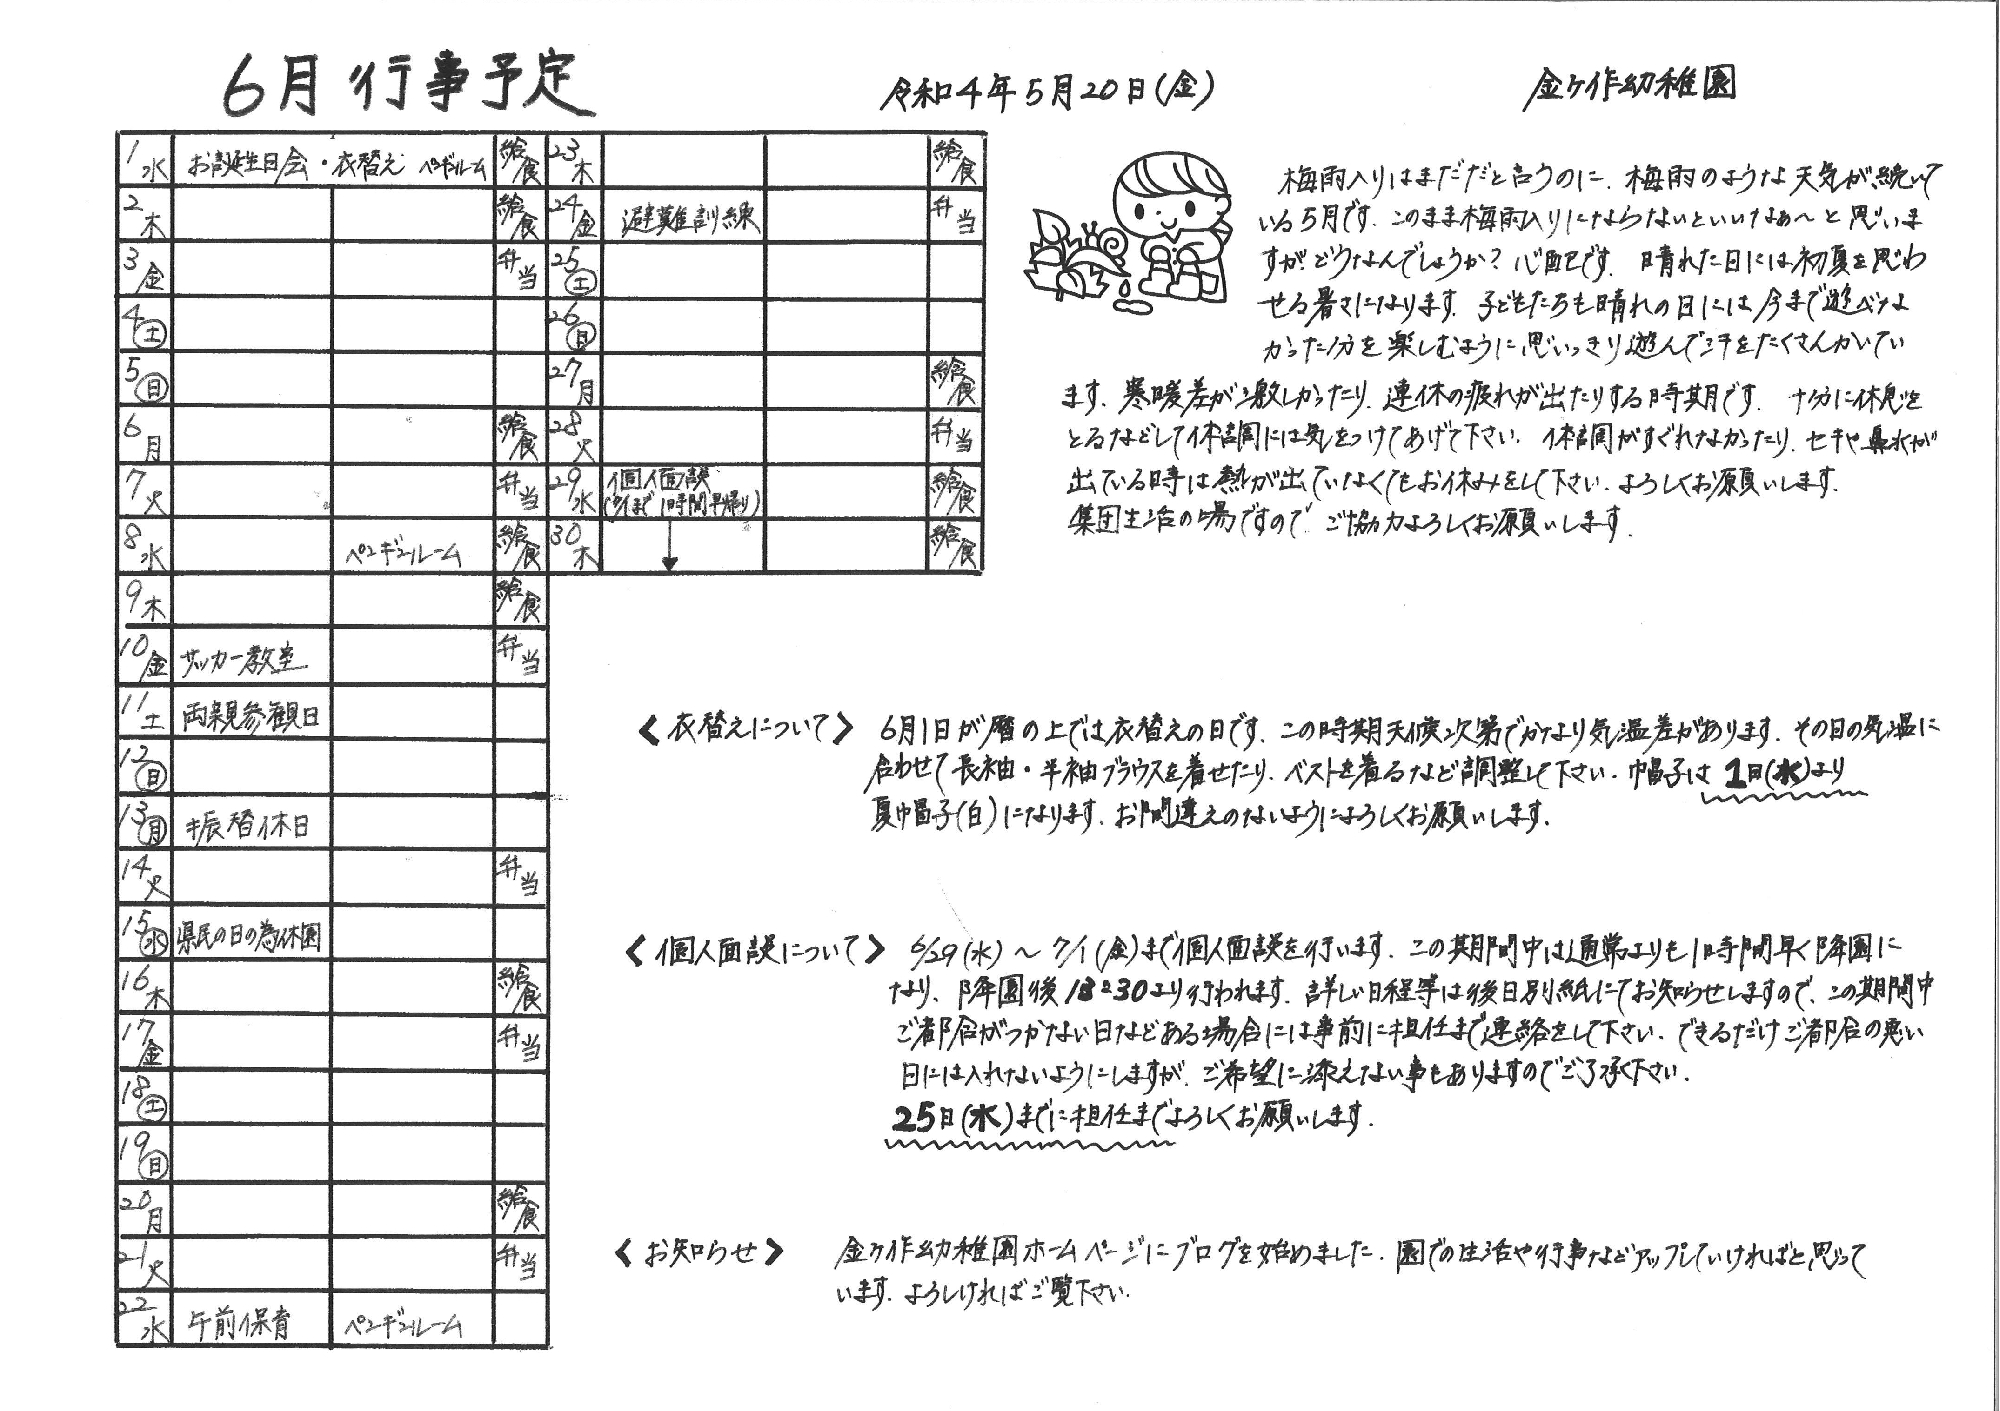 6月行事予定
令和4年5月20日(金)
金ヶ作幼稚園
1水 お誕生日会・衣替え ペンギンルーム 給食
2木 給食
3金 弁当
4土
5日
6月 給食
7火 弁当
8水 ペンギンルーム 給食
9木 給食
10金 サッカー教室 弁当
11土 両親参観日
12日
13月 振替休日
14火 弁当
15水 県民の日の為休園
16木 給食
17金 弁当
18土
19日
20月 給食
21火 弁当
22水 午前保育 ペンギンルーム
23木 給食
24金 避難訓練 弁当
25土
26日
27月 給食
28火 弁当
29水 個人面談 給食
(7/1まで1時間早帰り)
30木 給食
梅雨入りはまだだと言うのに、梅雨のような天気が続いて
いる5月です。このまま梅雨入りにならないといいなぁ〜と思いま
すが、どうなんでしょうか?心配です。晴れた日には初夏を思わ
せる暑さになります。子どもたちも晴れの日には今まで遊べな
かった分を楽しむように思いっきり遊んで汗をたくさんかいてい
ます。寒暖差が激しかったり、連休の疲れが出たりする時期です。十分に休息を
とるなどして体調には気をつけてあげて下さい。体調がすぐれなかったり、セキや鼻水が
出ている時は熱が出ていなくてもお休みをして下さい。よろしくお願いします。
集団生活の場ですので、ご協力よろしくお願いします。
<衣替えについて> 6月1日が暦の上では衣替えの日です。この時期天候次第でかなり気温差があります。その日の気温に
合わせて長袖・半袖ブラウスを着せたり、ベストを着るなど調整して下さい。帽子は1日(水)より
夏帽子(白)になります。お間違えのないようによろしくお願いします。
<個人面談について> 6/29(水)〜7/1(金)まで個人面談を行います。この期間中は通常よりも1時間早く降園に
なり、降園後13:30より行われます。詳しい日程等は後日別紙にてお知らせしますので、この期間中
ご都合がつかない日などある場合には事前に担任まで連絡をして下さい。できるだけご都合の悪い
日には入れないようにしますが、ご希望に添えない事もありますのでご了承下さい。
25日(水)までに担任までよろしくお願いします。
<お知らせ> 金ヶ作幼稚園ホームページにブログを始めました。園での生活や行事などアップしていければと思って
います。よろしければご覧下さい。